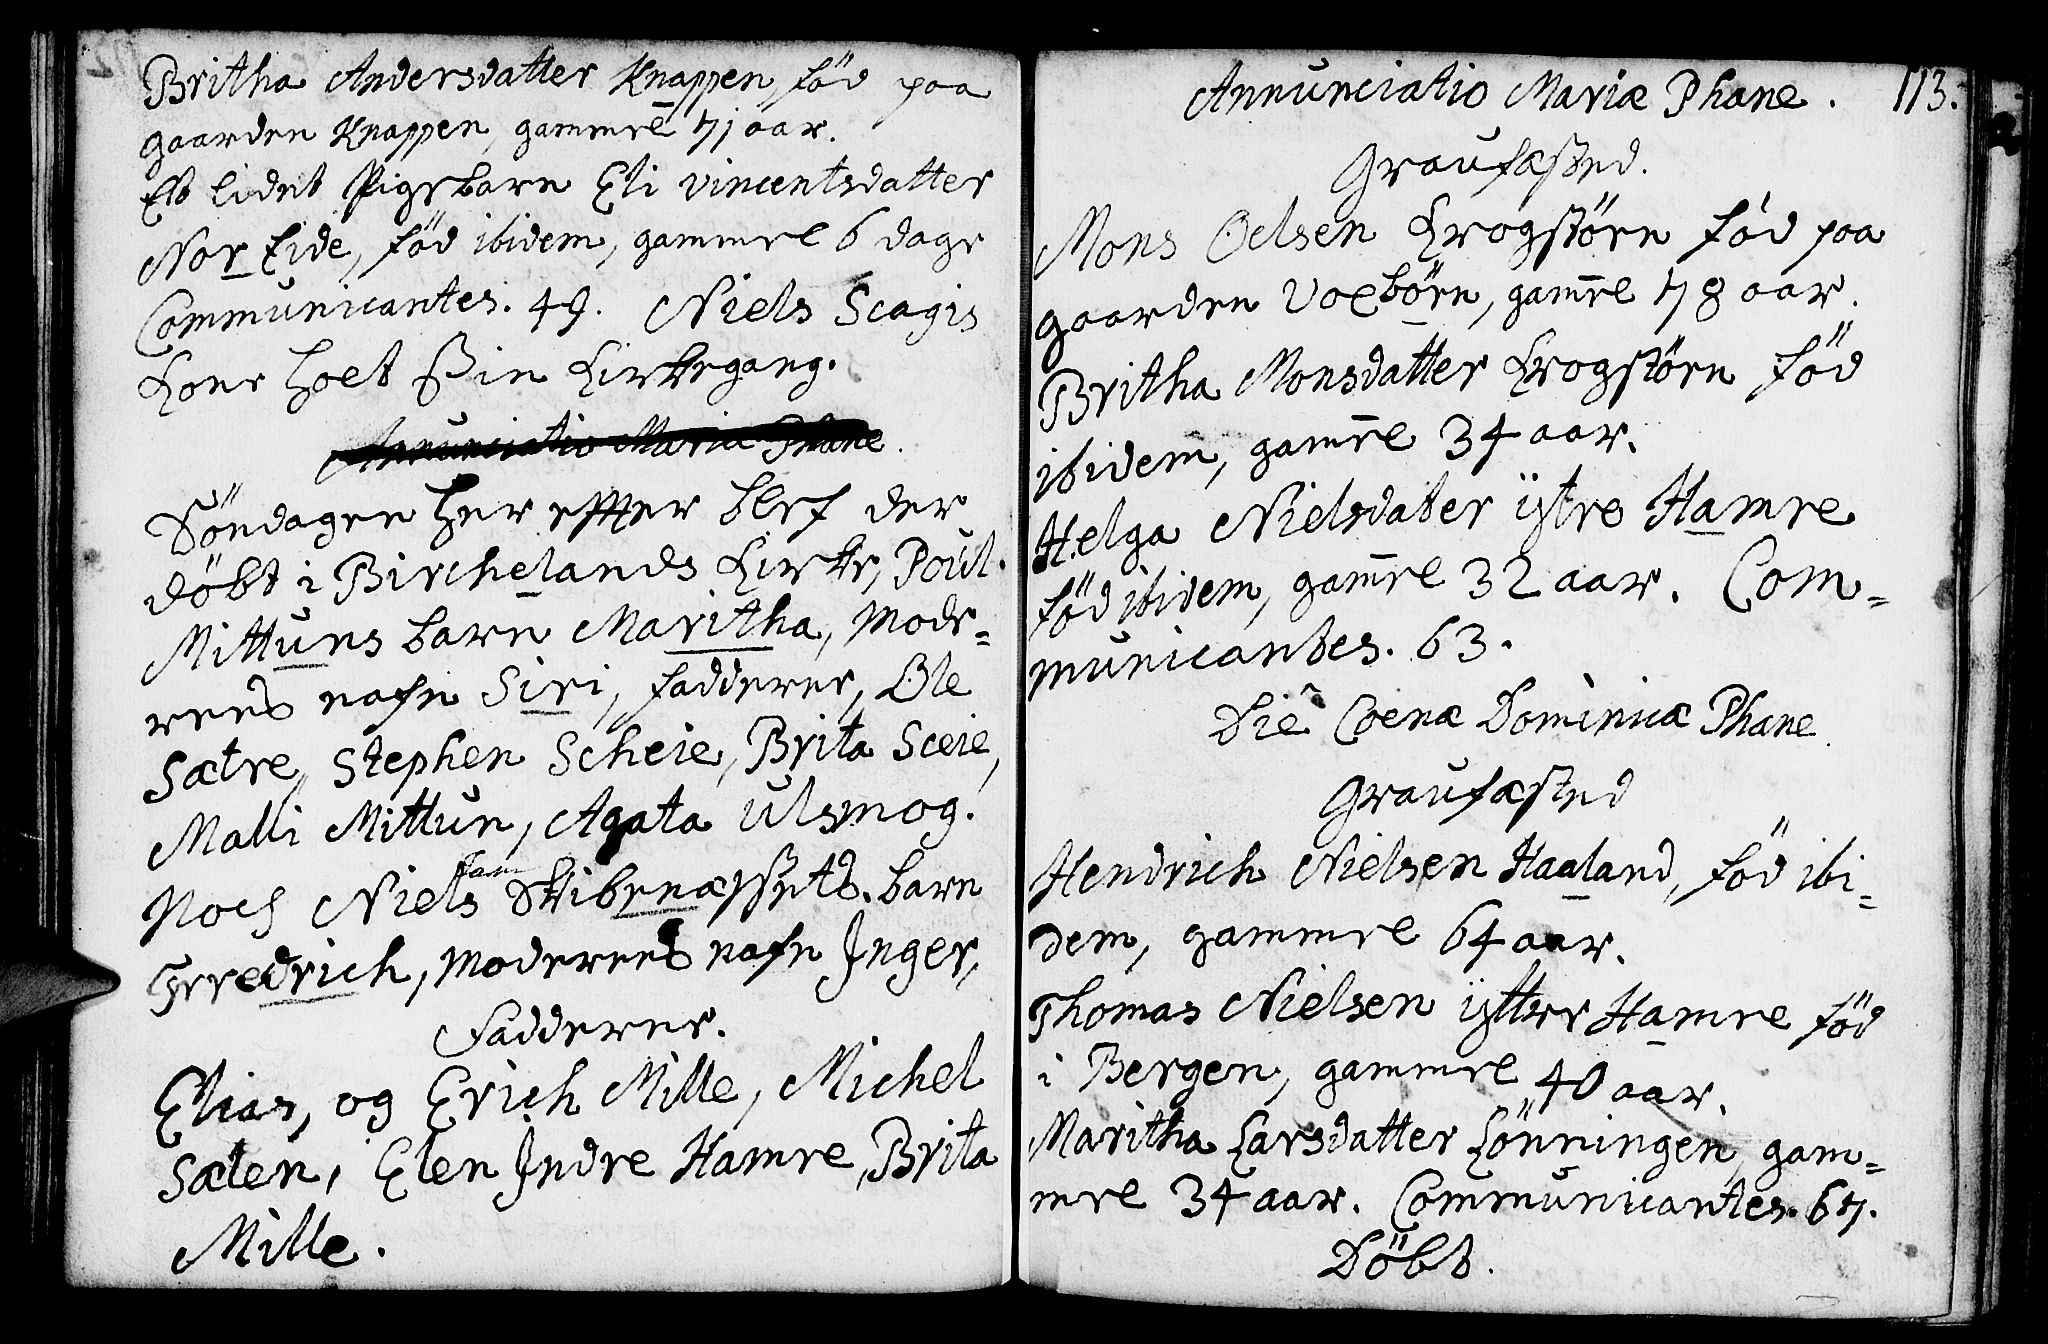 Britha Andersdatter Knappen, föd paa
gaarden Knappen, gammel 71 aar.
Et lidet Pigebarn Eli Vincentsdatter
Nor Eide, föd ibidem, gammel 6 dage
Communicantes. 49. Niels Scagis
Kone holt sin Kirkegang.
Annunciatio Mariæ Phane.
Söndagen her effter blef der
döbt i Birchelands Kirke, Poul
Mittuns barn Maritha, Mode=
rens nafn Siri, fadderne, Ole
Sætre, Stephen Scheie, Brita Sceie,
Malli Mittun, Agata Ulsmog.
Noch Niels Skibenæssets barn
Fredrich, Moderens nafn Inger,
Fadderne.
Elias, og Erich Mille, Michel
Sæten, Elen Indre Hamre, Brita
Mille.
Annunciatio Mariæ Phane. 113.
Graufæsted.
Mons Oelsen Krogstörn föd paa
gaarden Voxbörn, gam̄el 78 aar.
Britha Monsdatter Krogstörn föd
ibidem, gam̄el 34 aar.
Helga Nielsdater ÿtre Hamre
föd ibidem, gam̄el 32 aar. Com=
municantes. 63.
Die Coenæ Dominicæ Phane
Graufæsted
Hendrich Nielsen Haaland, föd ibi=
dem, gammel 64 aar.
Thomas Nielsen ÿttre Hamre föd
i Bergen, gammel 40 aar.
Maritha Larsdatter Lönningen, gam=
mel 34 aar. Communicantes. 67.
Döbt.